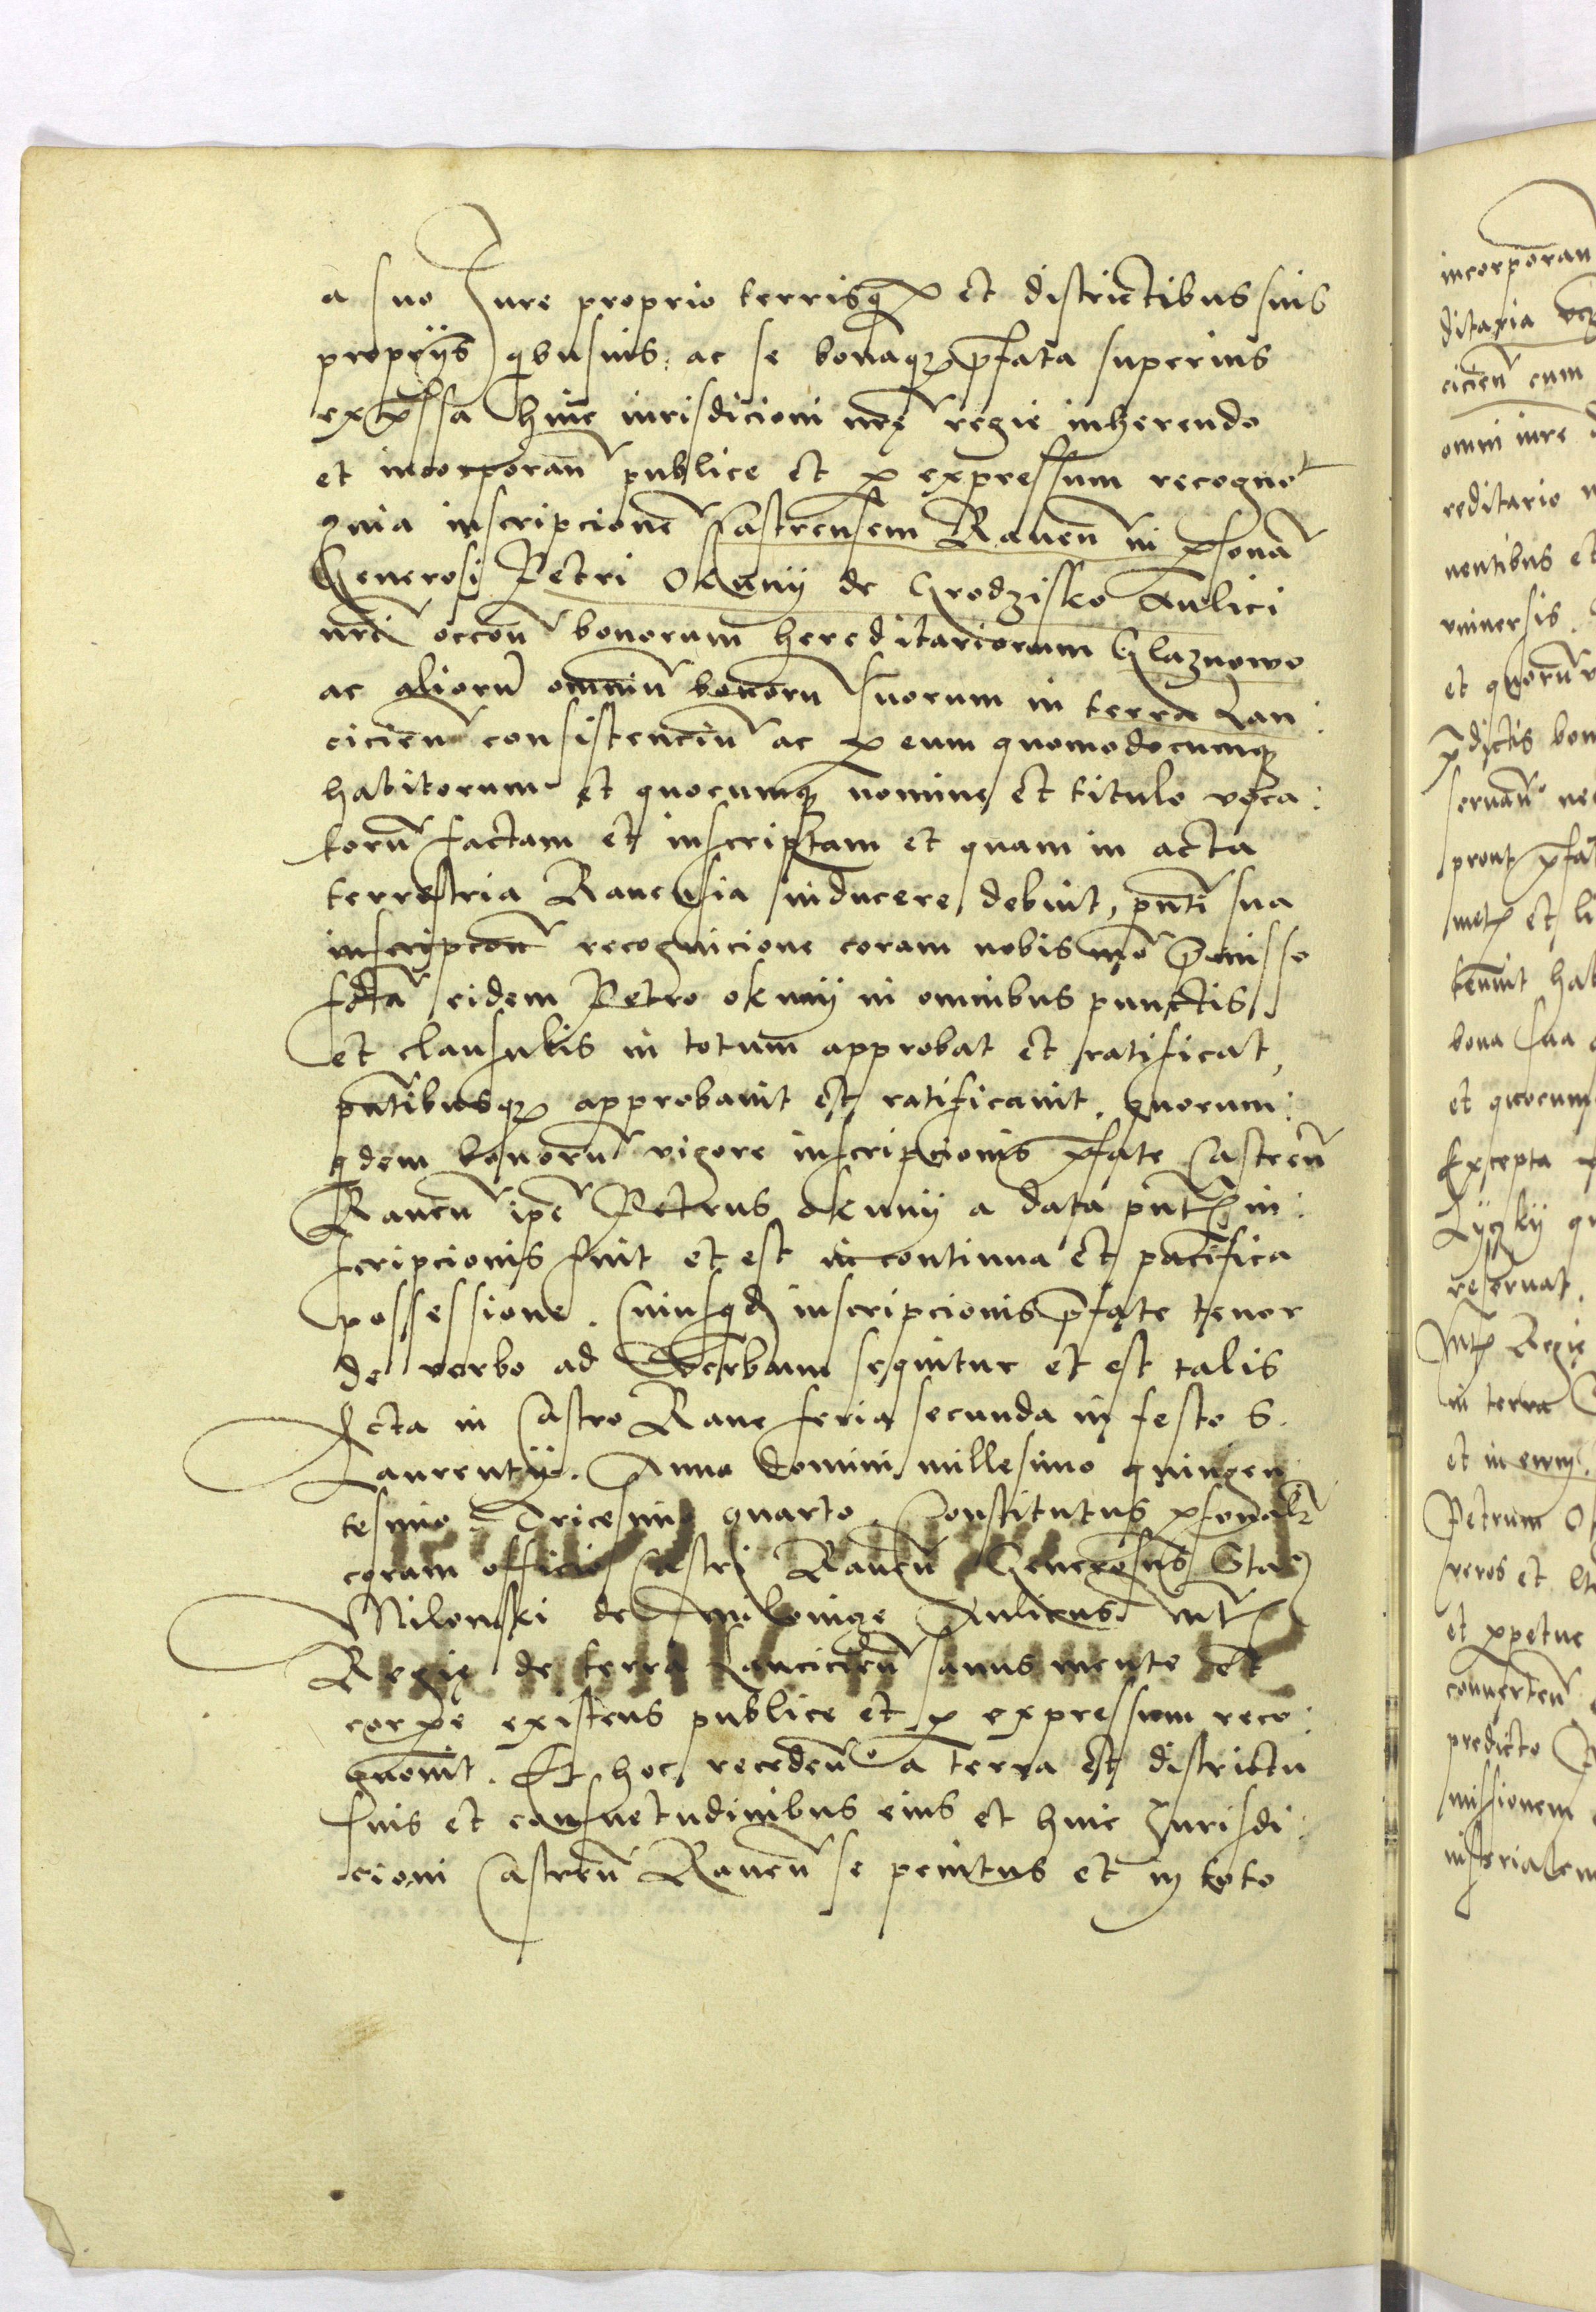 a suo Jure proprio terrisq et districtibus suis
proprijs qbusuis ac se bonaq pfata superius
expssa huic iurisdicioni nre regie inherendo
et incorporan publice et p expressum recogno
Quia inscripcione Castrensem Rauen in psona
Generosi Petri Okuny de Grodzisko Aulici
nri occon bonorum hereditariorum Glaznowo
ac alioru omniu bonoru suorum in terra Lan:
cicien consistenciu ac p eum quomodocumq
habitorum et quocumq nomine et titulo voca:
toru factam et inscriptam et quam in acta
terrestria Rauensia inducere debuit, pnti sua
inscripcon recognicione coram nobis mo pmisso
fcta eidem Petro okuny in omnibus punctis
et clausulis in totum approbat et ratificat,
pntibusq approbauit et ratificauit. quorum:
qdem bonoru vigore inscripcionis pfate Castren
Rauen ipe Petrus okuny a data pnt in:
scripcionis fuit et est in continua et pacifica
possessione. Cuiusqd inscripcionis pfate tenor
de verbo ad Verbum sequitur et est talis
Acta in Castro Raue feria secunda in festo S.
Laurentij. Anno domini millesimo quingen:
tesimo Tricesimo quarto. Constitutus psonalr
coram officio Castri Rauen Generosus Sta
Milonski de Milonige Aulicus Mt
Regie de terra Lancicien sanus mente et
corpe existens publice et p expressum reco:
gnouit. Et hoc receden a terra et districtu
suis et consuetudinibus eius et huic Jurisdi:
cioni Castren Rauen se penitus et in toto
incorporan
ditaria
cicien cum
omni iure
reditario
nentibus et
vniuersis.
et quoru
pdictis bon
seruan
prout pfat
et li
tenuit hab
bona sua
et quocum
Excepta

reseruat.
Mt Regie
in terra
et in eum
Petrum Ok
et
et ppetue
conuerten
predicto
missionem